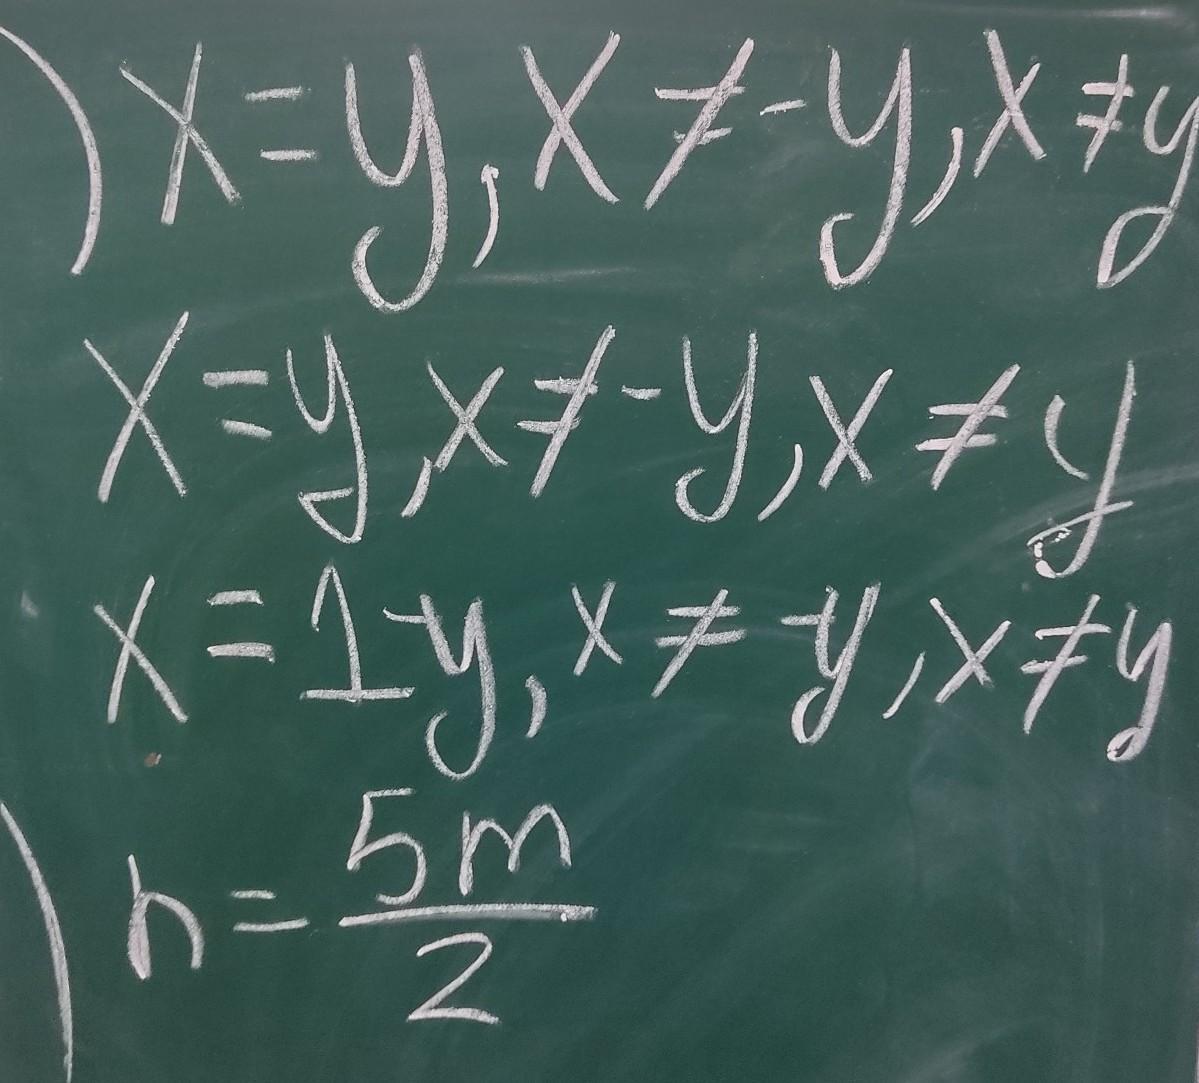 ) x = y, x ≠ -y, x ≠ y
x = y, x ≠ -y, x ≠ y
x = 1-y, x ≠ -y, x ≠ y
) n = 5m/2